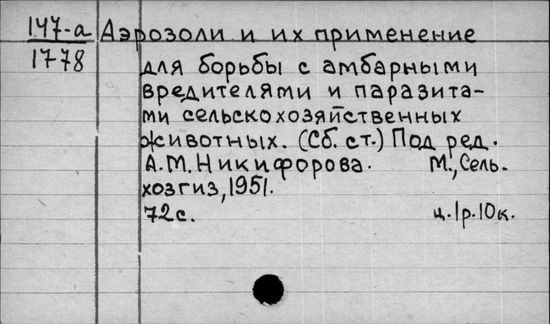 147-а Аэрозоли и их применение
1778
для борьбы с амбарными
вредителями и паразита-
ми сельскохозяйственных
животных. (Сб. ст.) Под ред.
А.М. Никифорова. М., Сель-
хозгиз, 1951.
72 с. ц. 1 р. 10 к.